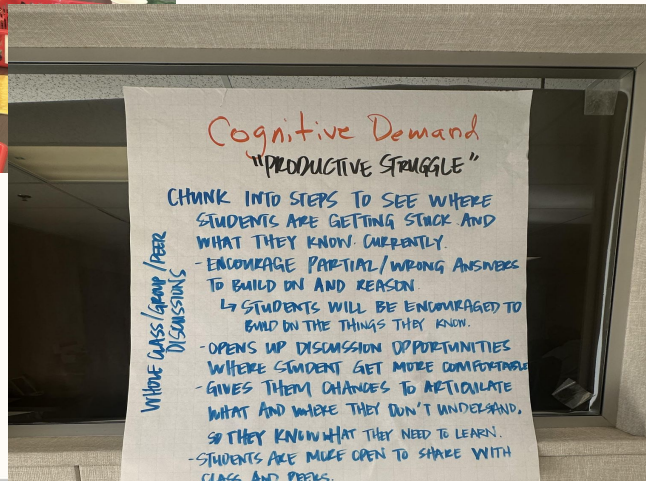 Cognitive Demand
"PRODUCTIVE STRUGGLE"
CHUNK INTO STEPS TO SEE WHERE
STUDENTS ARE GETTING STUCK AND
WHAT THEY KNOW CURRENTLY.
- ENCOURAGE PARTIAL/WRONG ANSWERS
TO BUILD ON AND REASON.
↳ STUDENTS WILL BE ENCOURAGED TO
BUILD ON THE THINGS THEY KNOW.
- OPENS UP DISCUSSION OPPORTUNITIES
WHERE STUDENT GET MORE COMFORTABLE
- GIVES THEM CHANCES TO ARTICULATE
WHAT AND WHERE THEY DON'T UNDERSAND,
SO THEY KNOW WHAT THEY NEED TO LEARN.
- STUDENTS ARE MORE OPEN TO SHARE WITH
CLASS AND PEERS.
WHOLE CLASS/GROUP/PEER
DISCUSSIONS